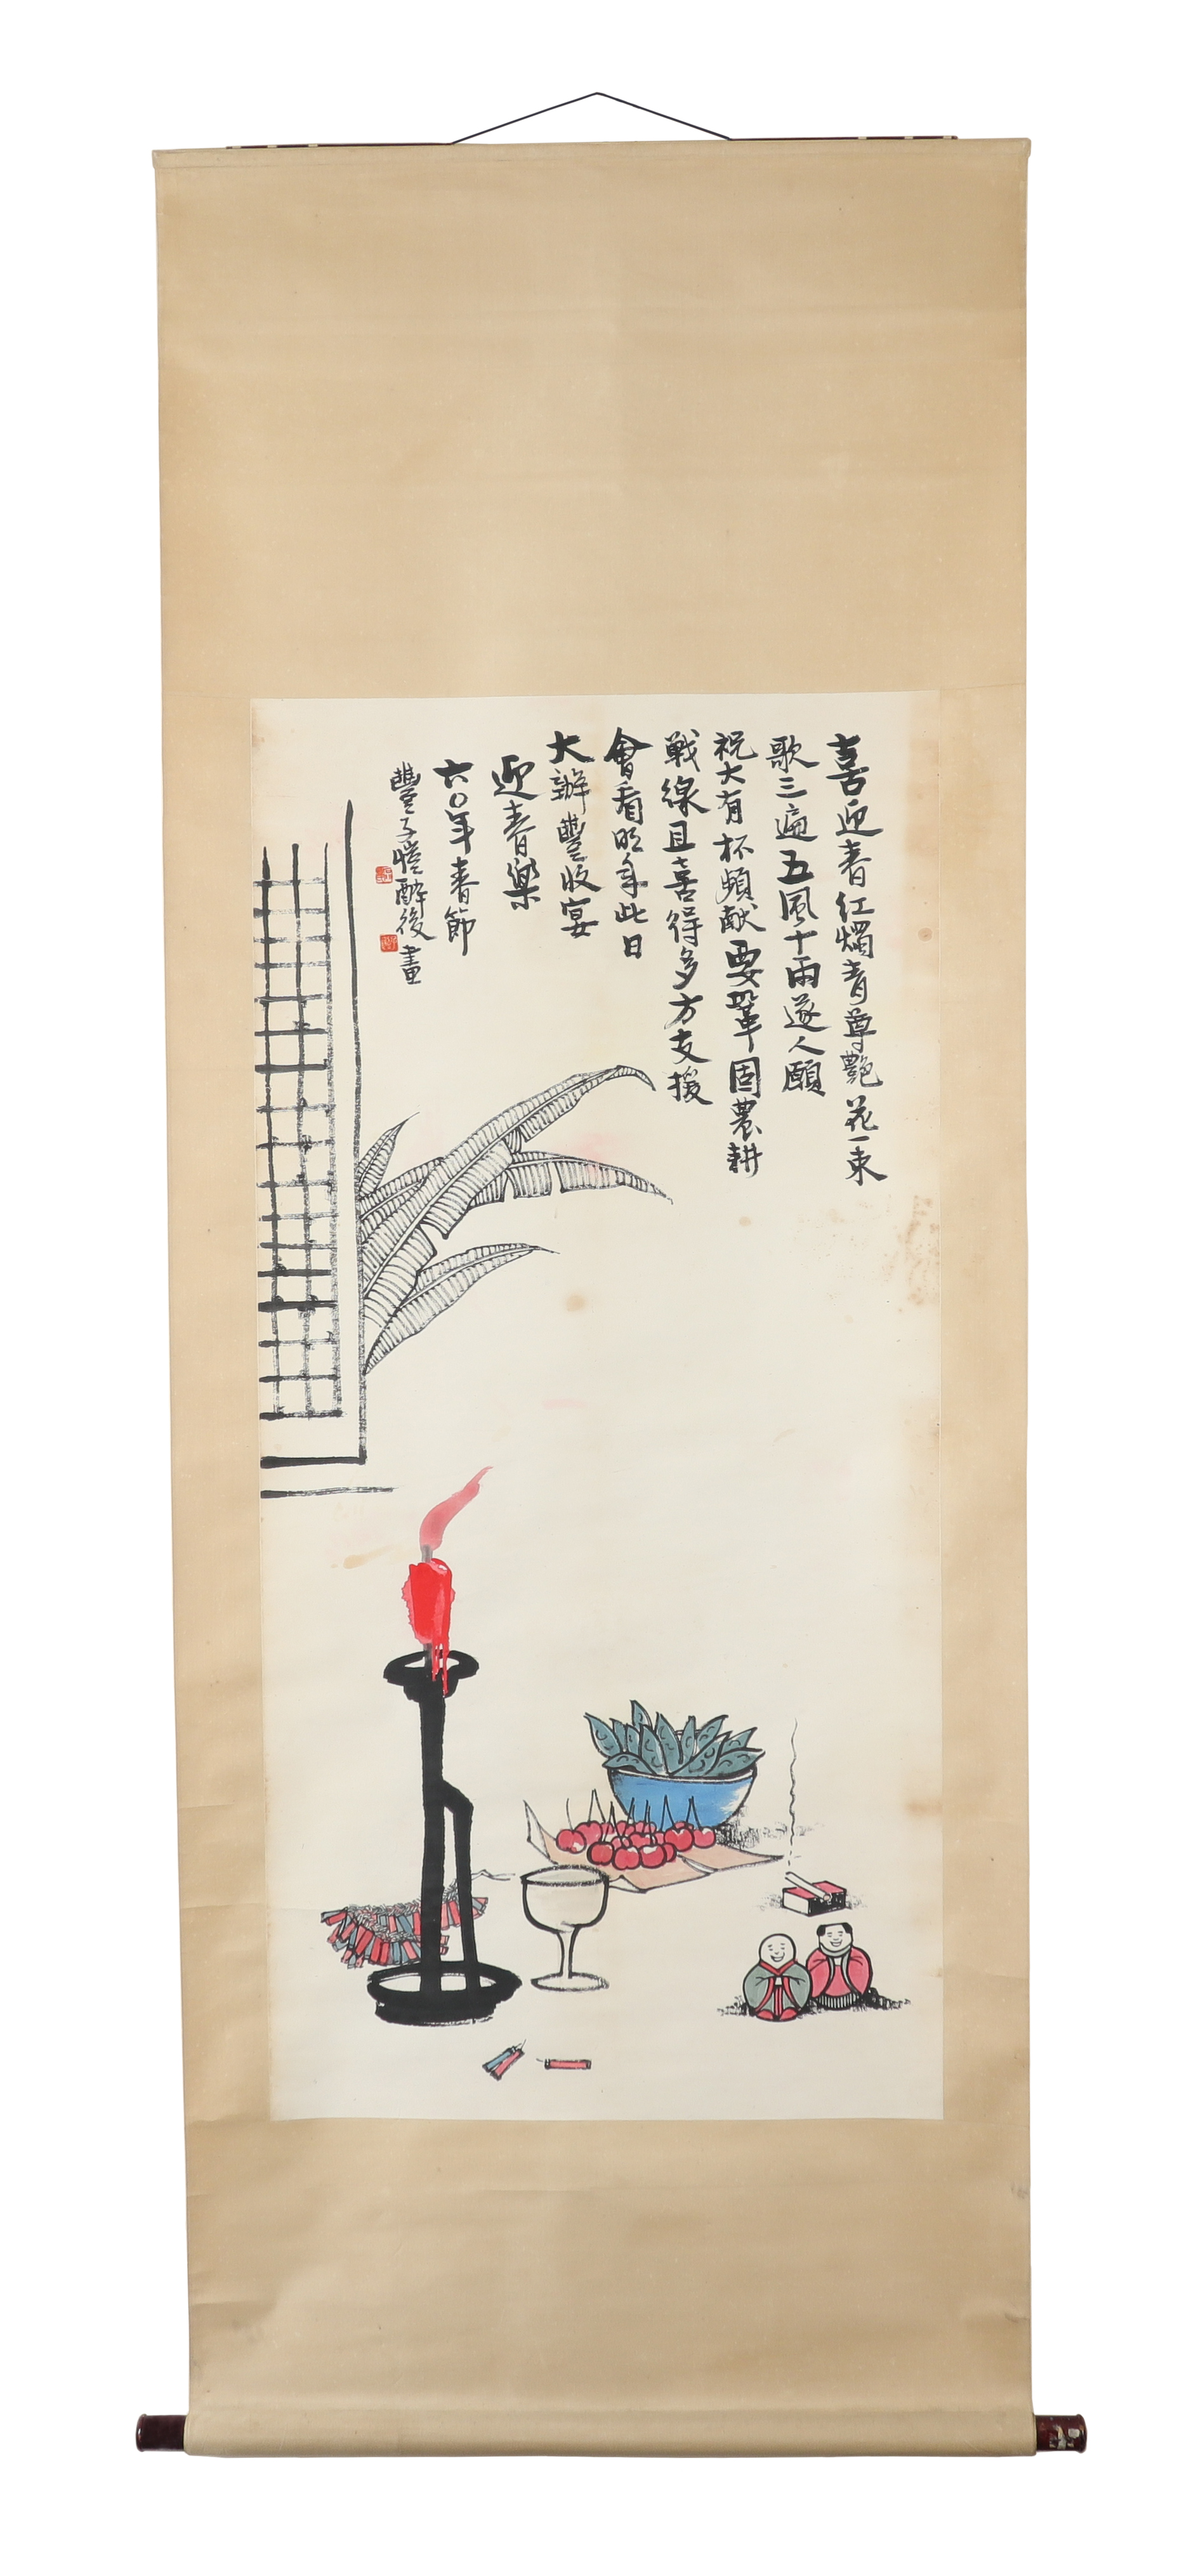 喜迎春红燭青尊艷花一束
歌三遍五風十雨遂人願
祝大有杯頻献要鞏固農耕
戦線且喜得多方支援
會看明年此日
大辦豐收宴
迎春樂
六〇年春節
豐子愷醉後畫